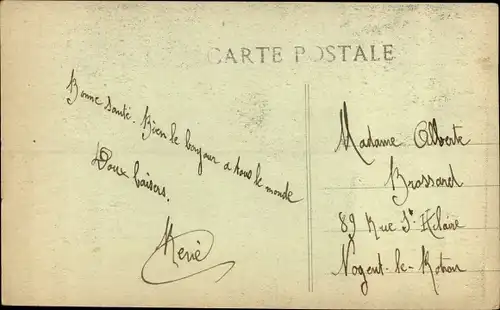 CARTE POSTALE
Bonne santé. Bien le bonjour a tous le monde
Doux baisers.
René
Madame Alberte
Brossard
89 Rue St Hilaire
Nogent-le-Rotrou